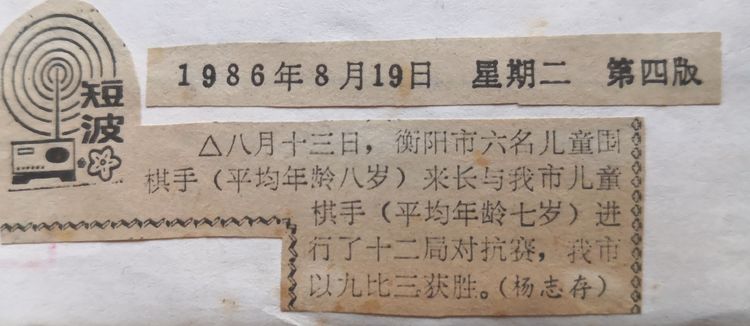 短波
1986年8月19日 星期二 第四版
△八月十三日，衡阳市六名儿童围
棋手（平均年龄八岁）来长与我市儿童
棋手（平均年龄七岁）进
行了十二局对抗赛，我市
以九比三获胜。（杨志存）